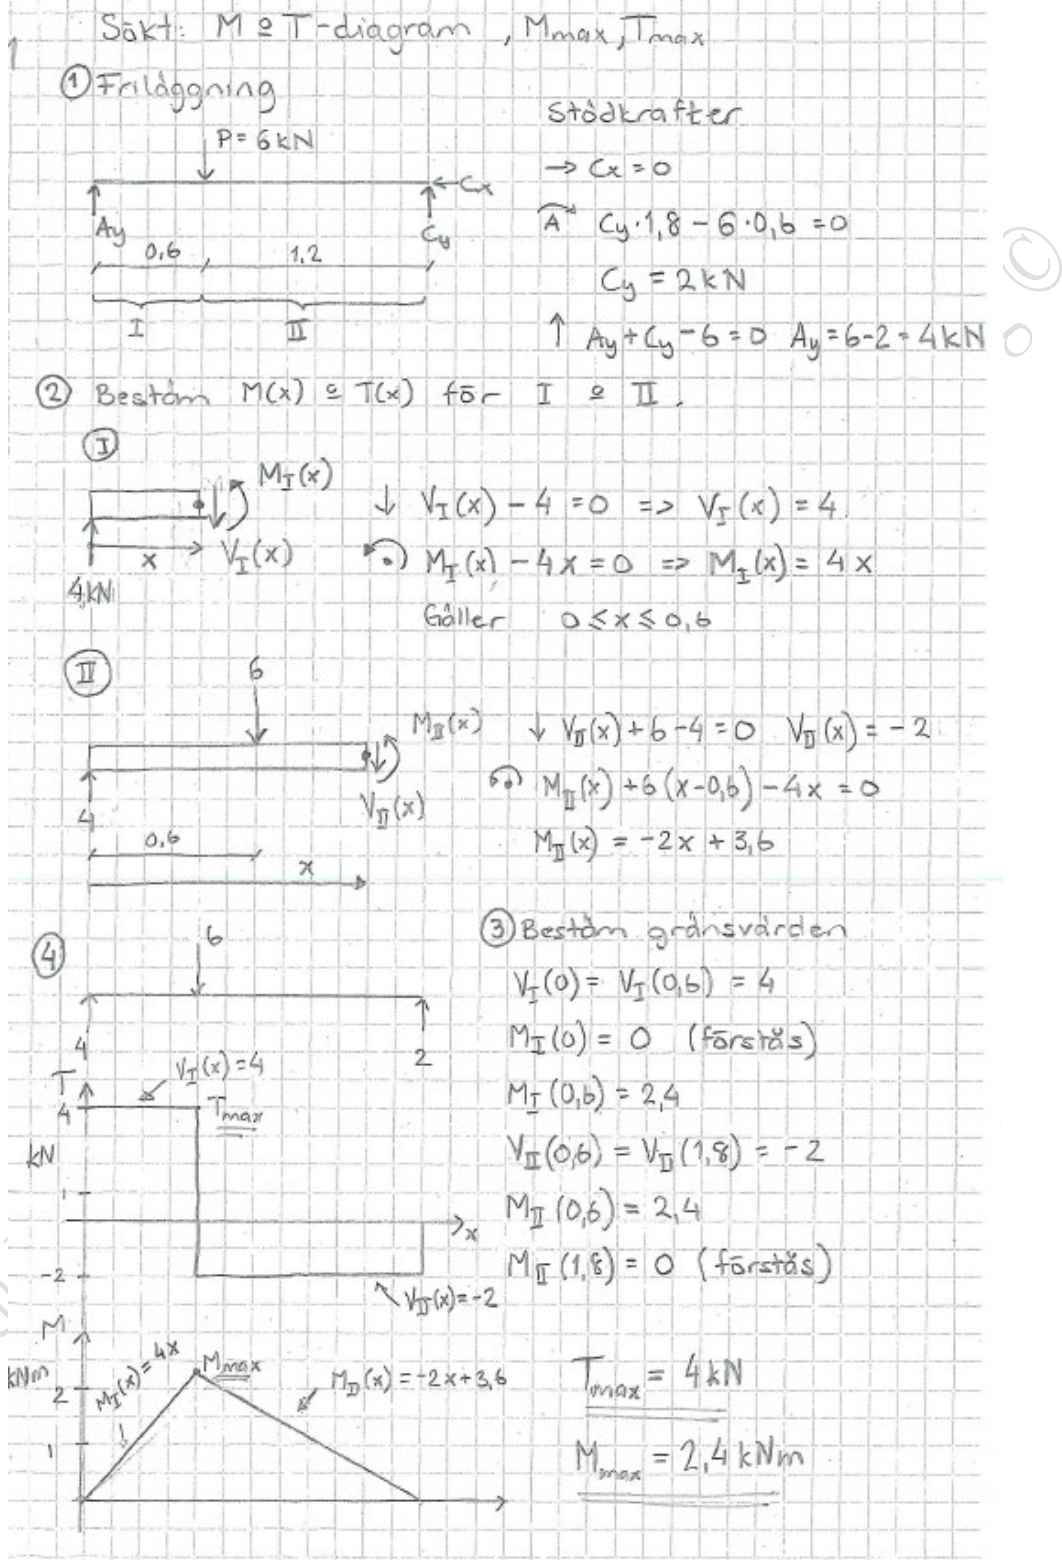 Sökt: M o T-diagram , Mmax, Tmax
① Friläggning
P = 6 kN
Cx
Ay
Cy
0,6
1,2
I
II
Stödkrafter
→ Cx = 0
A Cy·1,8 - 6·0,6 = 0
Cy = 2 kN
↑ Ay + Cy - 6 = 0 Ay = 6-2 = 4 kN
② Bestäm M(x) o T(x) för I o II.
I
M_I(x)
x
V_I(x)
4 kN
↓ V_I(x) - 4 = 0 => V_I(x) = 4
M_I(x) - 4x = 0 => M_I(x) = 4x
Gäller 0 ≤ x ≤ 0,6
II
6
M_II(x)
V_II(x)
4
0,6
x
↓ V_II(x) + 6 - 4 = 0 V_II(x) = -2
M_II(x) + 6(x-0,6) - 4x = 0
M_II(x) = -2x + 3,6
③ Bestäm gränsvärden
V_I(0) = V_I(0,6) = 4
M_I(0) = 0 (förstås)
M_I(0,6) = 2,4
V_II(0,6) = V_II(1,8) = -2
M_II(0,6) = 2,4
M_II(1,8) = 0 (förstås)
④
6
4
2
T
V_I(x) = 4
4
Tmax
kN
1
x
-2
V_II(x) = -2
M
kNm
M_I(x) = 4x
Mmax
M_II(x) = -2x + 3,6
2
1
Tmax = 4 kN
Mmax = 2,4 kNm